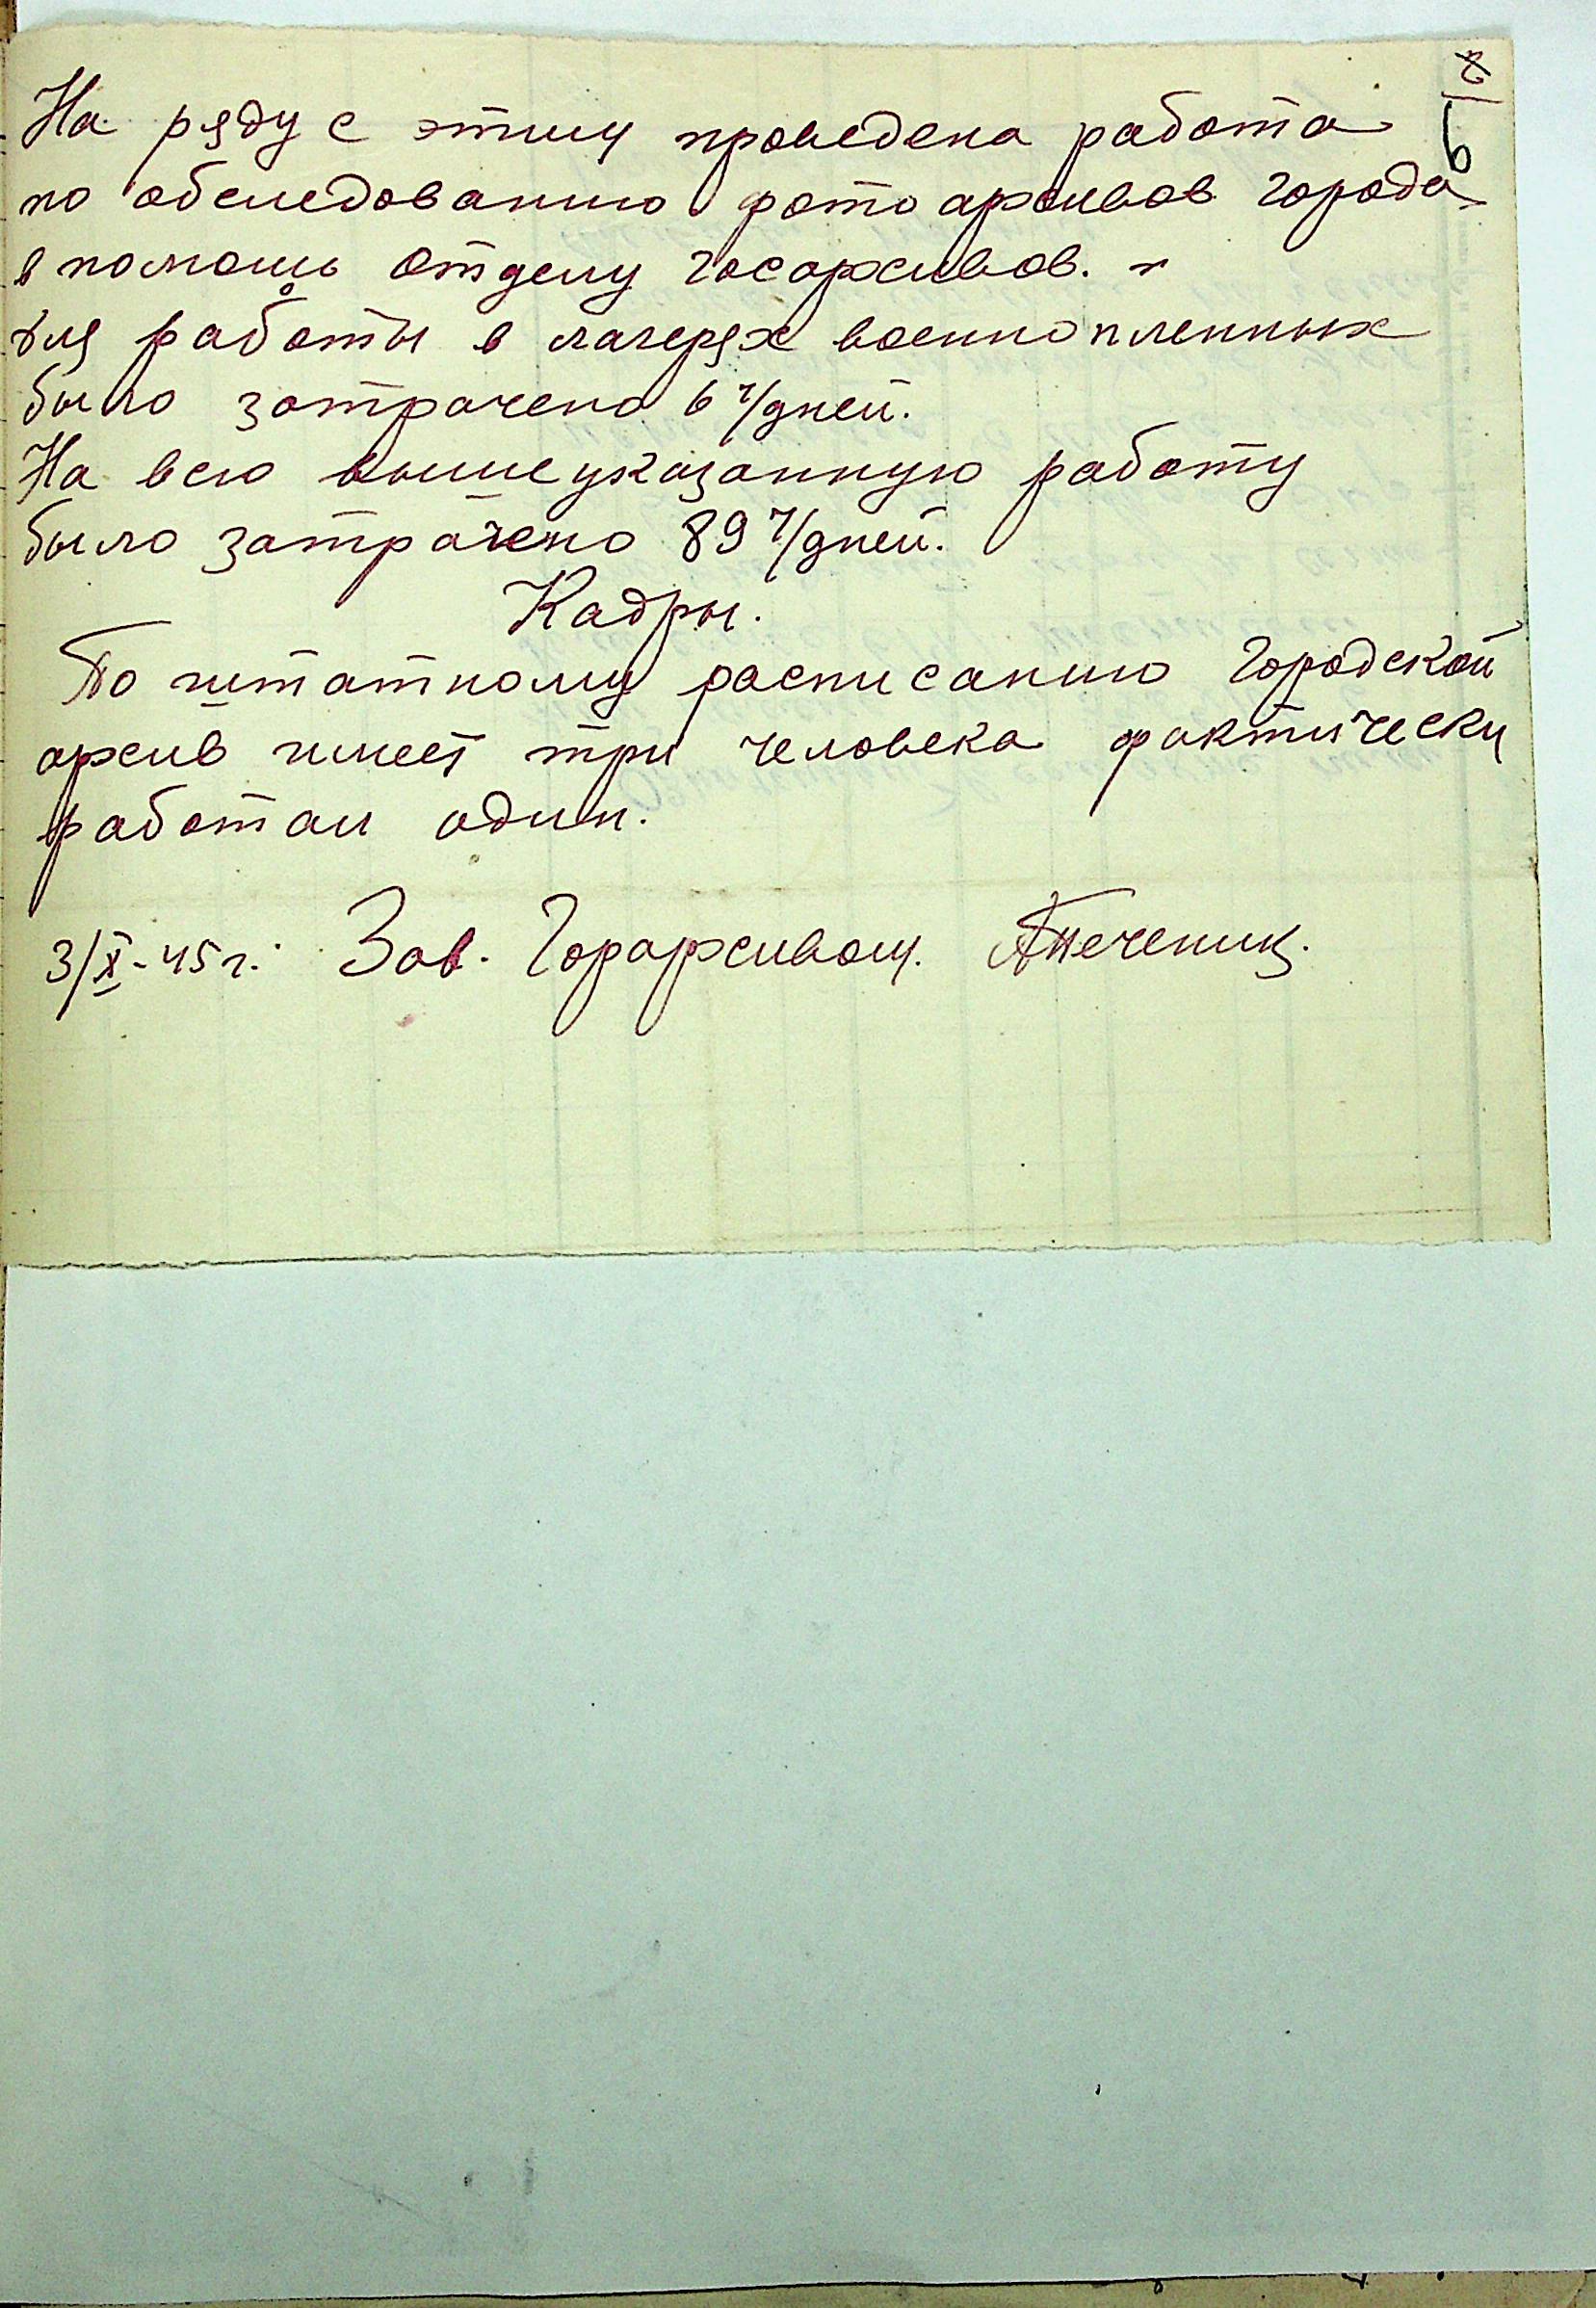 На ряду с этим проведена работа
по обследованию фото архивов города
в помощь отделу госархивов. -
для работы в лагерях военнопленных
было затрачено 6 ч/дней.
На всю вышеуказанную работу
было затрачено 89 ч/дней.
Кадры.
По штатному расписанию Городской
архив имеет три человека фактически
работал один.
3/X-45г. Зав. Горархивом.